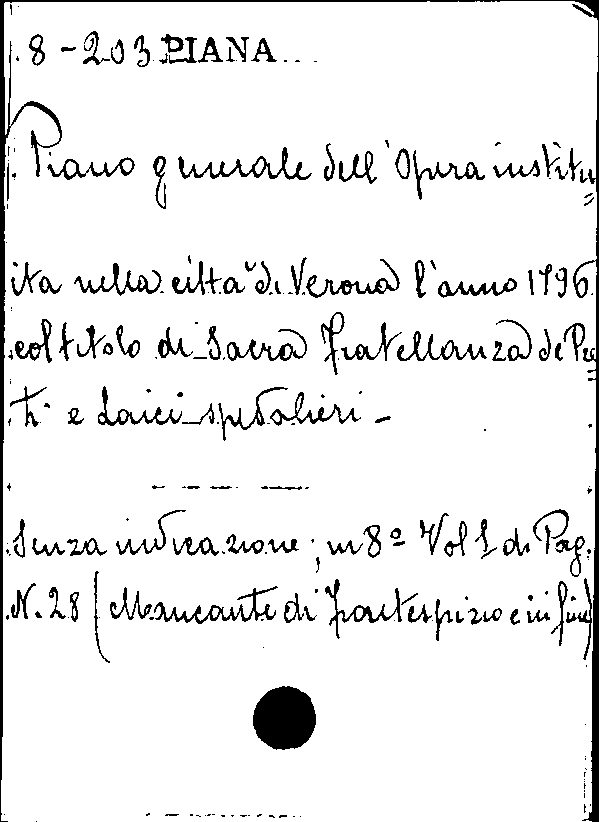 8-203 PIANA
Piano generale dell'Opera institu=
ita nella città di Verona l'anno 1796
col titolo di Sacra Fratellanza de Pre=
ti e Laici spedalieri -
Senza indicazione; in 8º Vol 1 di Pag.
N. 28 (Mancante di frontespizio e in fine)